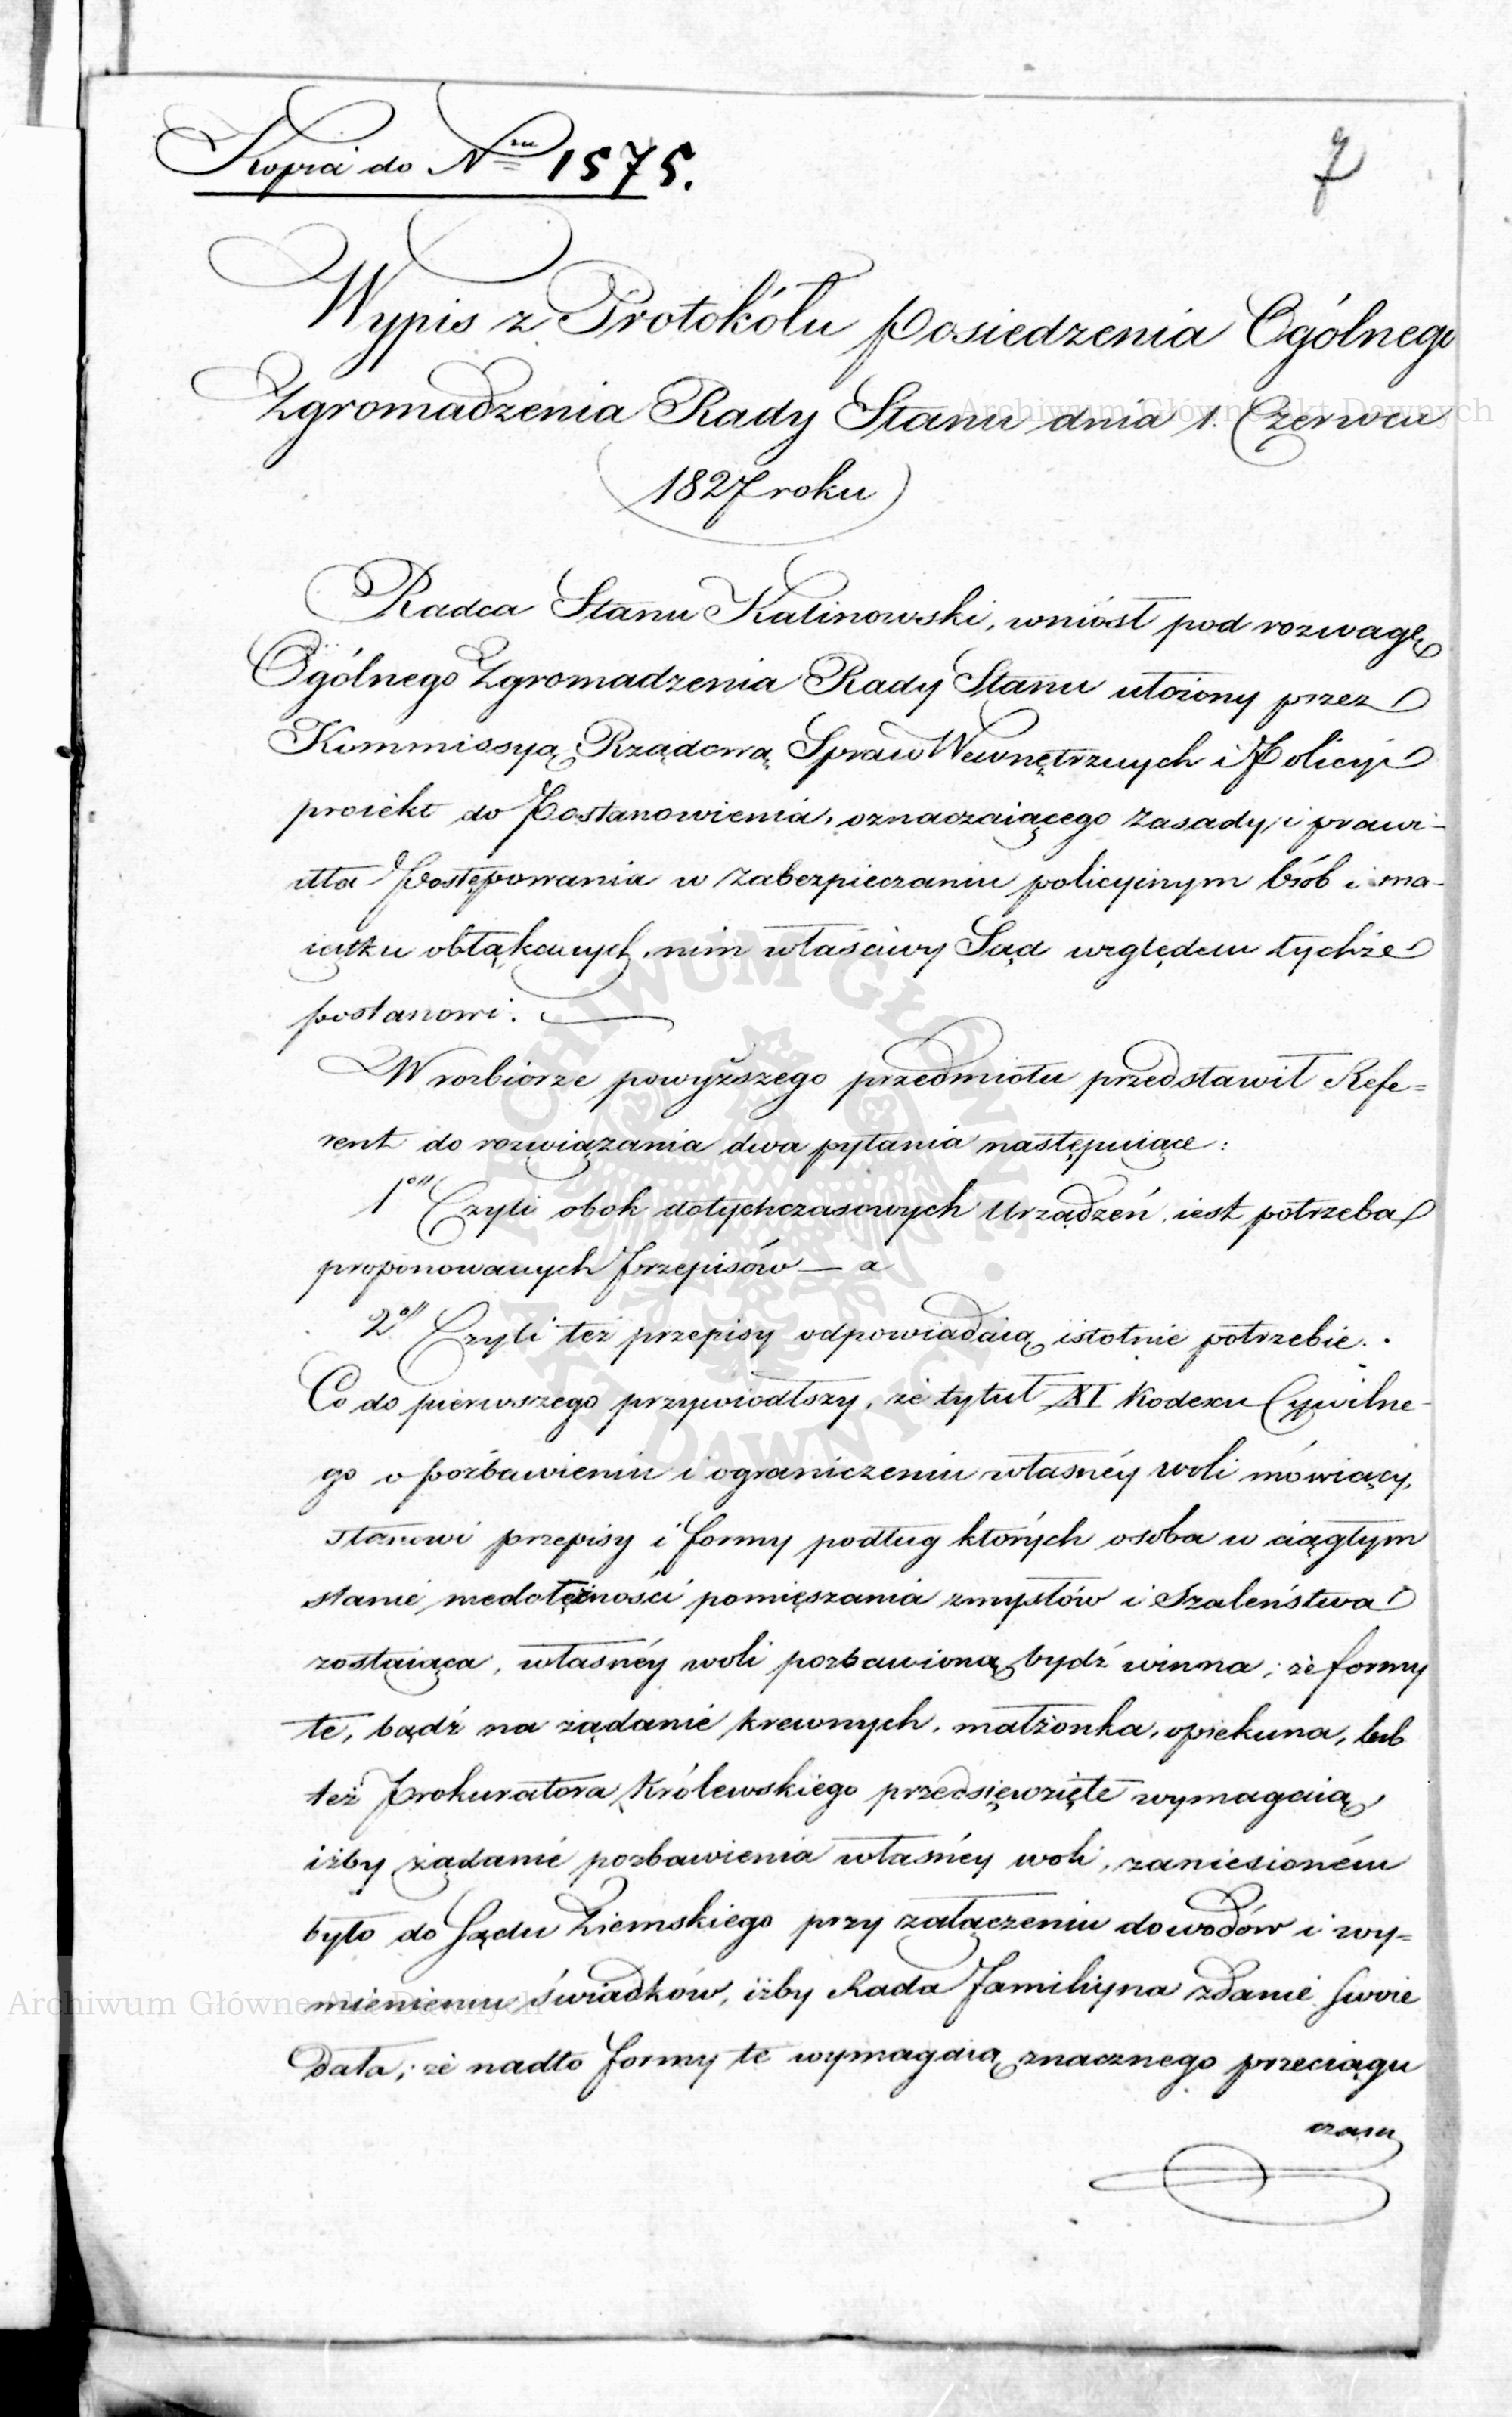 Kopia do Nru 1575.
7
Wypis z Protokółu Posiedzenia Ogólnego
Zgromadzenia Rady Stanu dnia 1. Czerwca
1827 roku
Radca Stanu Kalinowski, wniósł pod rozwagę
Ogólnego Zgromadzenia Rady Stanu ułożony przez
Kommissyą Rządową Spraw Wewnętrznych i Policyi
proiekt do Postanowienia, oznaczaiącego zasady i prawi-
dła Postępowania w zabezpieczaniu policyinym Osób i ma-
iątku obłąkanych, nim właściwy Sąd względem tychże
postanowi.
W rozbiorze powyższego przedmiotu przedstawił Refe=
rent do rozwiązania dwa pytania następuiące:
1od Czyli obok dotychczasowych Urządzeń, iest potrzeba
proponowanych Przepisów — a
2o Czyli też przepisy odpowiadaią istotnie potrzebie.
Co do pierwszego przywiódłszy, że tytuł XI Kodexu Cywilne-
go o pozbawieniu i ograniczeniu własnéy woli mówiący,
stanowi przepisy i formy podług których osoba w ciągłym
stanie niedołężności pomięszania zmysłów i Szaleństwa
zostaiąca, własnéy woli pozbawioną bydź winna; że formy
te, bądź na żądanie krewnych, małżonka, opiekuna, lub
też Prokuratora Królewskiego przedsięwzięte wymagaią,
iżby żądanie pozbawienia własnéy woli, zaniesioném
było do Sądu Ziemskiego przy załączeniu dowodów i wy=
mienieniu świadków, iżby Rada Familiyna zdanie swoie
dała; że nadto formy te wymagaią znacznego przeciągu
czasu
Archiwum Główne Akt Dawnych
Archiwum Główne Akt Dawnych
ARCHIWUM GŁÓWNE AKT DAWNYCH